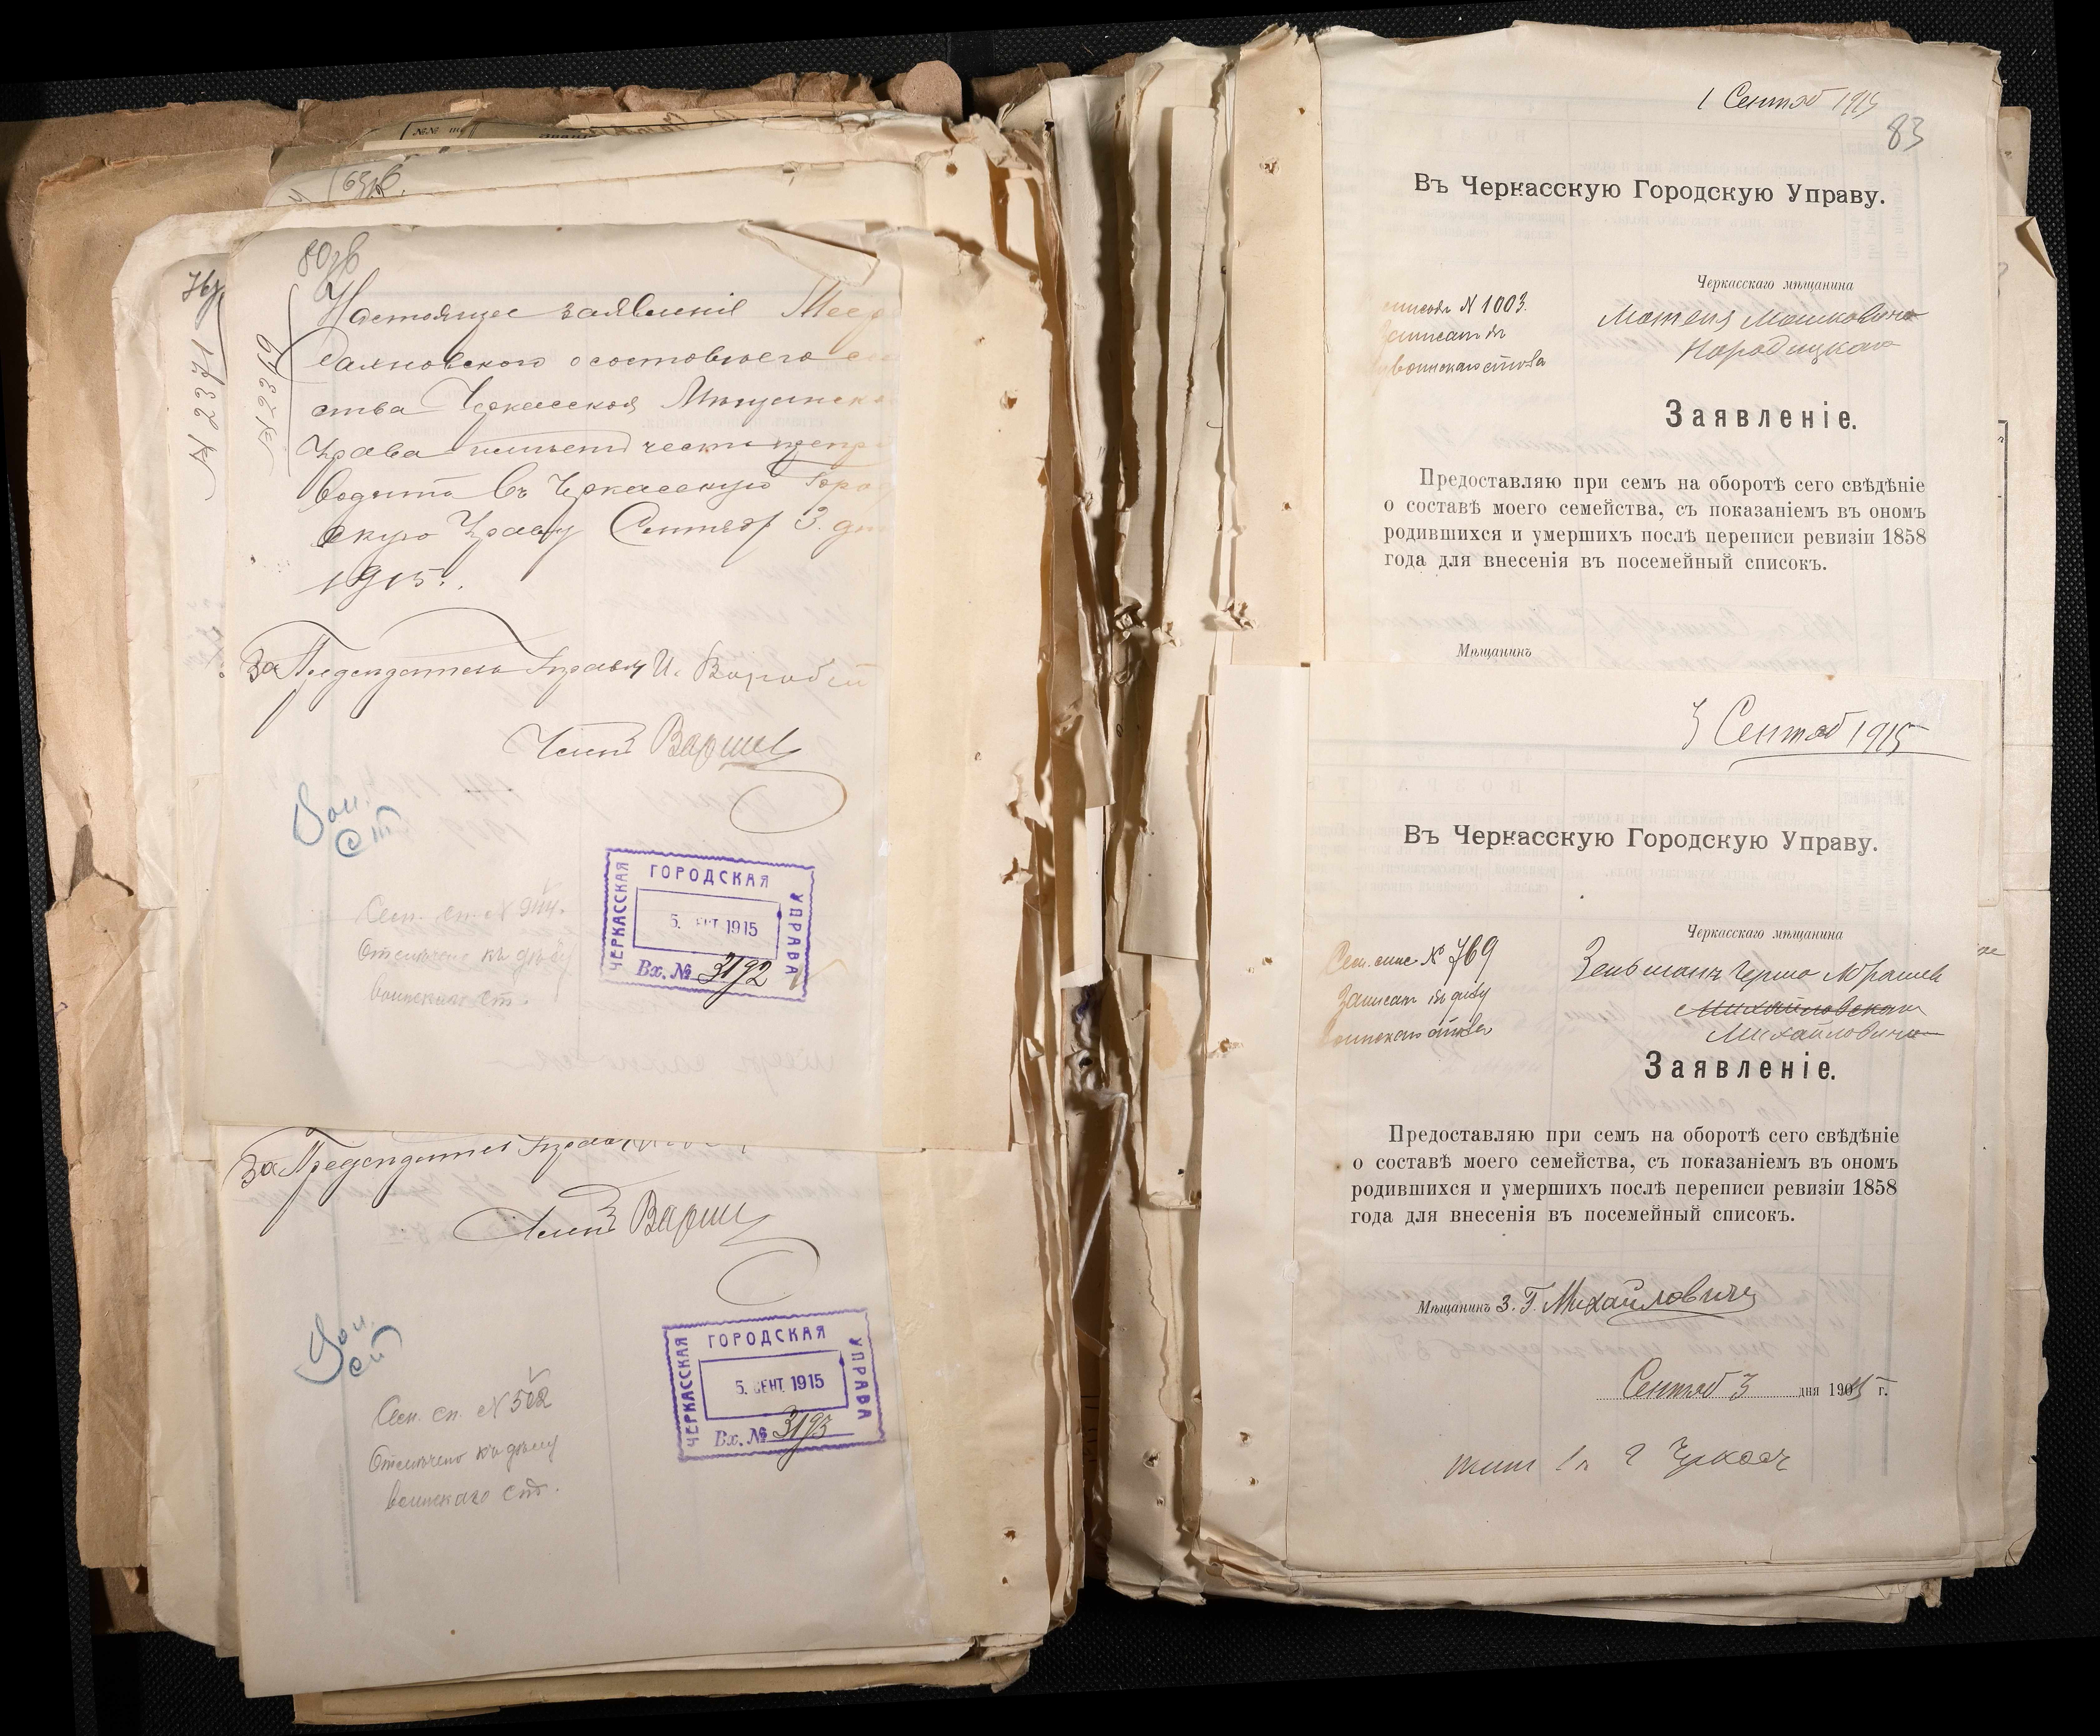 80 зв
№ 2369
Настоящее заявленіе Меер
Саяновского о составе его се
ства Черкасская Мѣщанска
Управа имѣетъ честь препр
водить въ Черкасскую Город
скую Управу Сентябр 3 дн
1915.
За Председателя Управы И. Воробей
Членъ
Вои.
Ст
Сем. сп. №
Отмечено къ дѣлу
воинской ст.
ЧЕРКАССКАЯ ГОРОДСКАЯ УПРАВА
5. СЕНТ 1915
Вх. № 3192
За Председателя Управы
Членъ
Вои.
ст
Сем. сп. № 502
Отмечено къ дѣлу
воинскаго ст.
ЧЕРКАССКАЯ ГОРОДСКАЯ УПРАВА
5. СЕНТ. 1915
Вх. № 3193
1 Сентяб 1915
83
Въ Черкасскую Городскую Управу.
Черкасскаго мѣщанина
Мотеля Мошковича
Народицкаго
№ 1003.
Записан въ
Заявленіе.
Предоставляю при семъ на оборотѣ сего свѣдѣніе
о составѣ моего семейства, съ показаніемъ въ ономъ
родившихся и умершихъ послѣ переписи ревизіи 1858
года для внесенія въ посемейный список.
Мѣщанинъ
3 Сентяб 1915
Въ Черкасскую Городскую Управу.
Черкасскаго мѣщанина
Сем. спис № 769
Зельманъ Герша
Записан въ дѣлу
Михайловскаго
Михайловича
Заявленіе.
Предоставляю при семъ на оборотѣ сего свѣдѣніе
о составѣ моего семейства, съ показаніемъ въ ономъ
родившихся и умершихъ послѣ переписи ревизіи 1858
года для внесенія въ посемейный списокъ.
Мѣщанинъ З. Г. Михайловичъ
Сентяб 3 дня 1915 г.